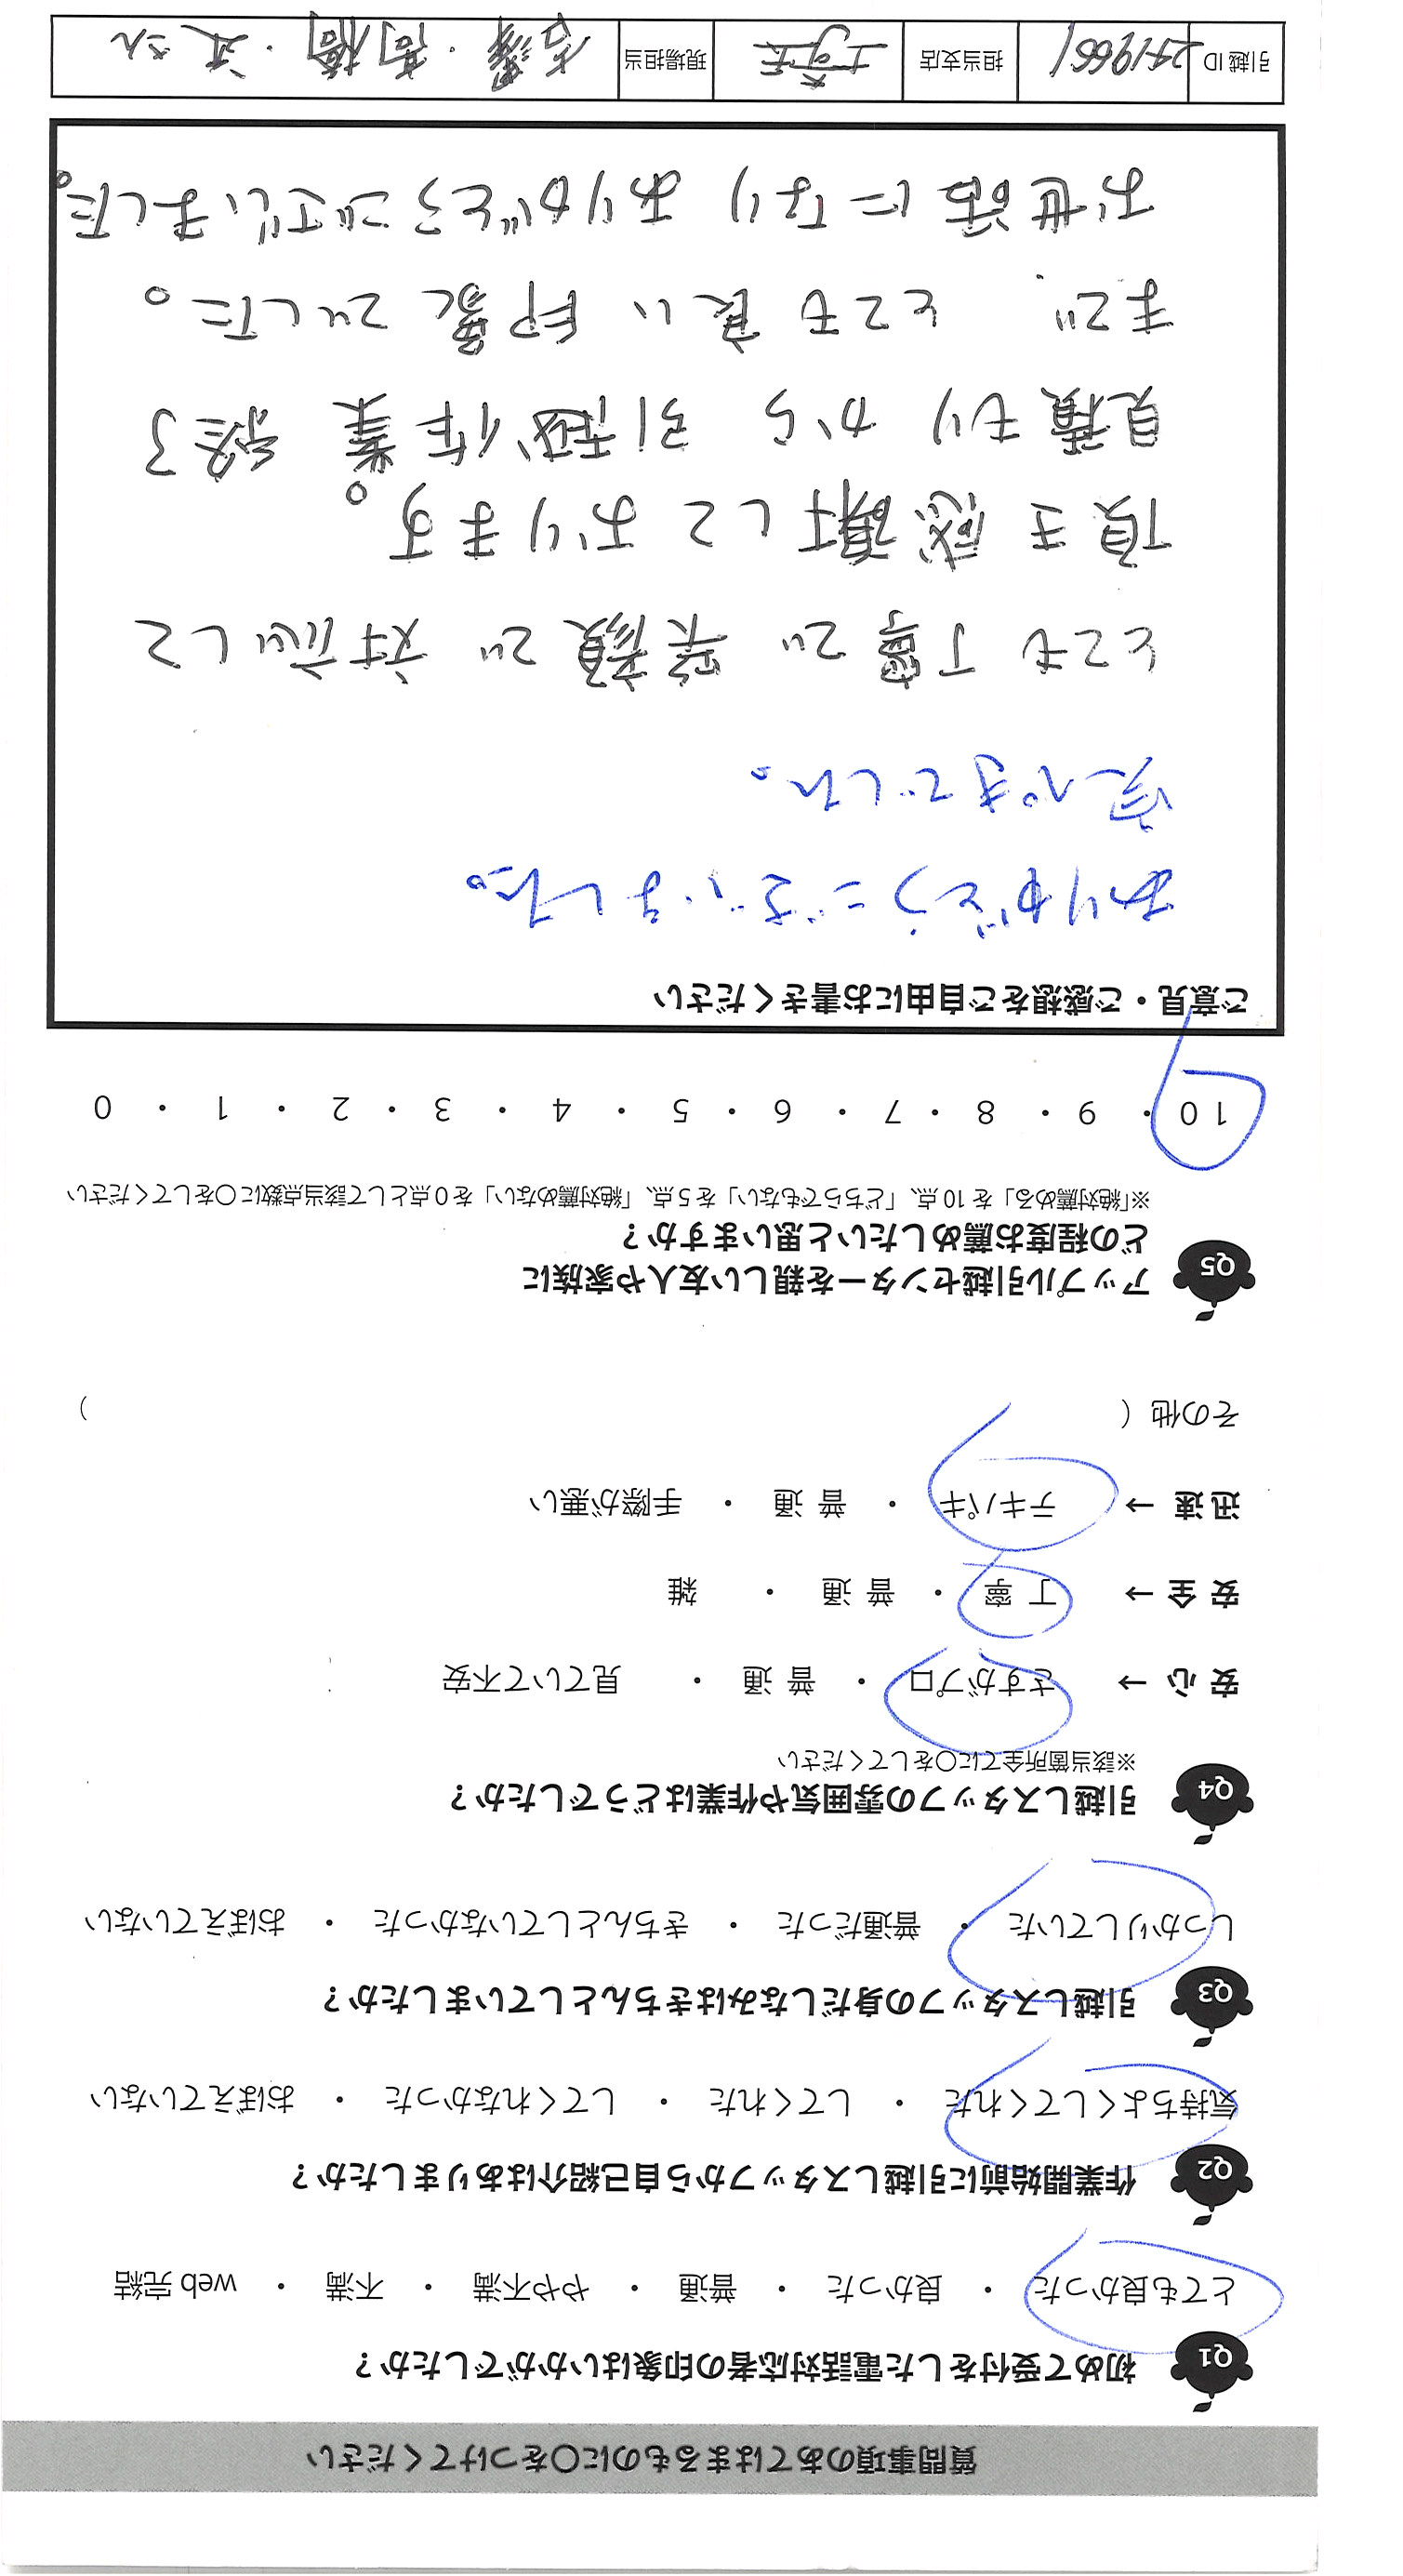 質問事項のあてはまるものに〇をつけてください
Q1 初めて受付をした電話対応者の印象はいかがでしたか？
とても良かった ・ 良かった ・ 普通 ・ やや不満 ・ 不満 ・ web 完結
Q2 作業開始前に引越しスタッフから自己紹介はありましたか？
気持ちよくしてくれた ・ してくれた ・ してくれなかった ・ おぼえていない
Q3 引越しスタッフの身だしなみはきちんとしていましたか？
しっかりしていた ・ 普通だった ・ きちんとしていなかった ・ おぼえていない
Q4 引越しスタッフの雰囲気や作業はどうでしたか？
※該当箇所全てに〇をしてください
安 心 → さすがプロ ・ 普 通 ・ 見ていて不安
安 全 → 丁 寧 ・ 普 通 ・ 雑
迅 速 → テキパキ ・ 普 通 ・ 手際が悪い
その他（ ）
Q5 アップル引越センターを親しい友人や家族に
どの程度お薦めしたいと思いますか？
※「絶対薦める」を 10 点、「どちらでもない」を 5 点、「絶対薦めない」を 0 点として該当点数に〇をしてください
10 ・ 9 ・ 8 ・ 7 ・ 6 ・ 5 ・ 4 ・ 3 ・ 2 ・ 1 ・ 0
ご意見・ご感想をご自由にお書きください
ありがとうございました。
完ぺきでした。
とても丁寧で笑顔で対応して
頂き感謝しております。
見積もりから引越作業終了
まで とても良い印象でした。
お世話になりありがとうございました。
引越 ID 担当支店 現場担当 高橋・